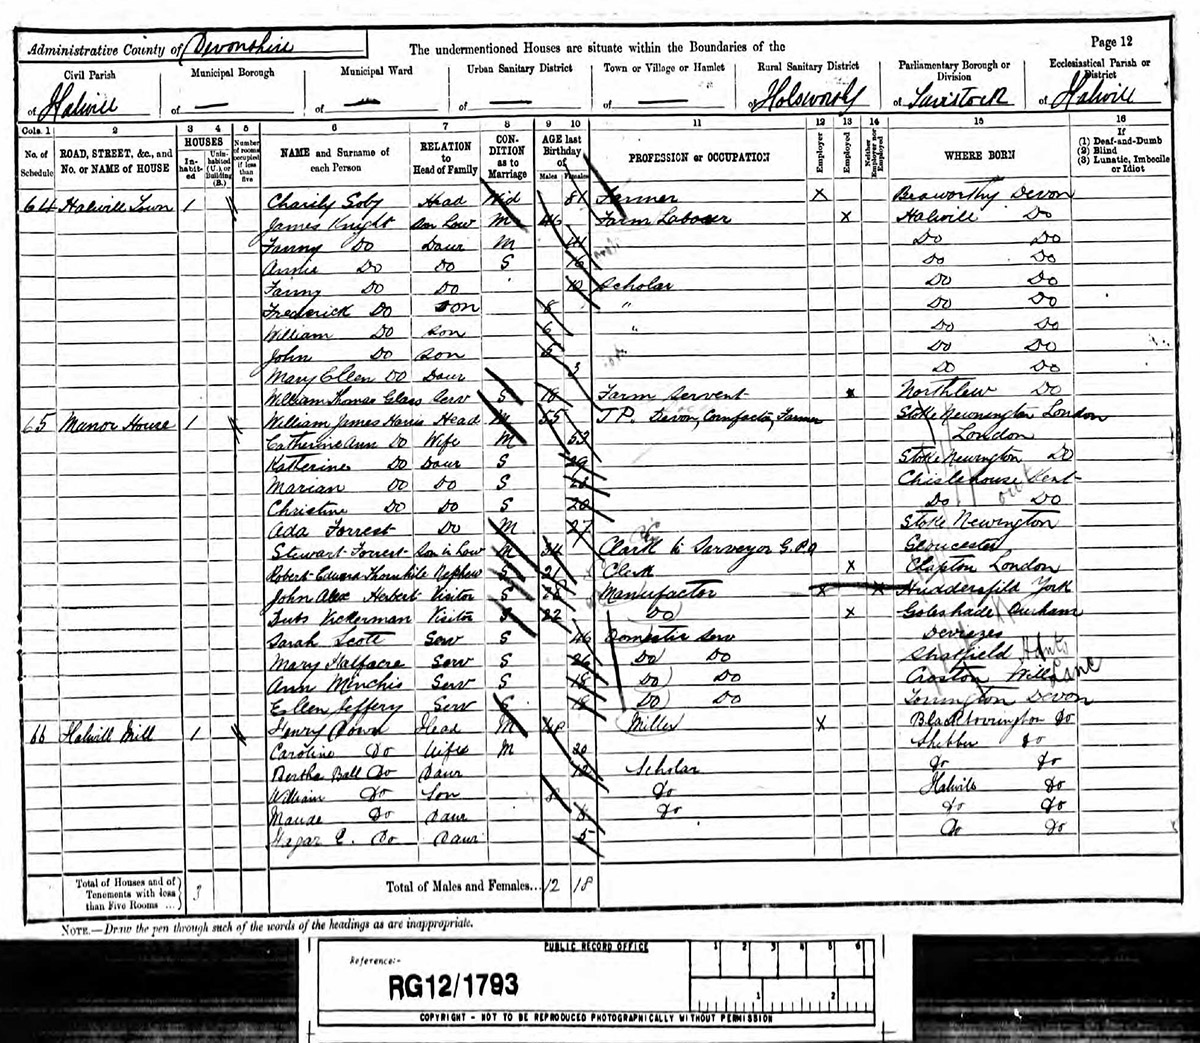 Administrative County of Devonshire
The undermentioned Houses are situate within the Boundaries of the
Page 12
Civil Parish of Halwill
Municipal Borough of —
Municipal Ward of —
Urban Sanitary District of —
Town or Village or Hamlet of —
Rural Sanitary District of Holsworthy
Parliamentary Borough or Division of Tavistock
Ecclesiastical Parish or District of Halwill
Cols. 1 2 3 4 5 6 7 8 9 10 11 12 13 14 15 16
No. of Schedule
ROAD, STREET, &c., and No. or NAME of HOUSE
HOUSES
Inhabited
Uninhabited (U.) or Building (B.)
Number of rooms occupied if less than five
NAME and Surname of each Person
RELATION to Head of Family
CONDITION as to Marriage
AGE last Birthday of
Males Females
PROFESSION or OCCUPATION
Employer
Employed
Neither Employer nor Employed
WHERE BORN
If (1) Deaf-and-Dumb (2) Blind (3) Lunatic, Imbecile or Idiot
64 Halwill Town 1 Charity Head Wid 81 Farmer X Devon
James Knight Son Law M 46 Farm Labourer X Halwill Do
Fanny Do Daur M Do Do
Annie Do Do S 16 Do Do
Fanny Do Do 10 Scholar Do Do
Frederick Do Son 8 " Do Do
William Do Son 6 " Do Do
John Do Son 5 Do Do
Mary Ellen Do Daur 3 Do Do
William Thomas Glass Serv S 18 Farm Servent X Northlew Do
65 Manor House 1 William James Harris Head M 55 Devon, Cornfactor, Farmer Stoke Newington London
Catherine Ann Do Wife M 53 London
Katherine Do Daur S 29 Stoke Newington Do
Marian Do Do S Chislehouse Kent
Christine Do Do S 20 Do Do
Ada Forrest Do M 27 Stoke Newington
Stewart Forrest Son in Law M 34 Clark to Surveyor G.P.O Gloucester
Robert Edward Thornhile Nephew S Clerk X Clapton London
John Alex Herbert Visitor S 28 Manufactor X X Huddersfild York
Dubs Vickerman Visitor S 22 Do X Durham
Sarah Scott Serv S 46 Domestic Serv Devizes
Mary Halfacre Serv S 26 Do Do Hants
Ann Minchis Serv S 18 Do Do Croston Lanc
Ellen Jeffery Serv S Do Do Torrington Devon
66 Halwill Mill 1 Henry Down Head M 48 Miller X Blacktorrington Do
Caroline Do Wife M Shebbear Do
Bertha Ball Do Daur 12 Scholar Do Do
William Do Son 8 Do Halwill Do
Maude Do Daur Do Do Do
Hagar E. Do Daur 5 Do Do
Total of Houses and of Tenements with less than Five Rooms ... 3
Total of Males and Females... 12 18
NOTE.—Draw the pen through such of the words of the headings as are inappropriate.
PUBLIC RECORD OFFICE
1 2 3 4 5 6
Reference:-
RG12/1793
1 2
COPYRIGHT - NOT TO BE REPRODUCED PHOTOGRAPHICALLY WITHOUT PERMISSION